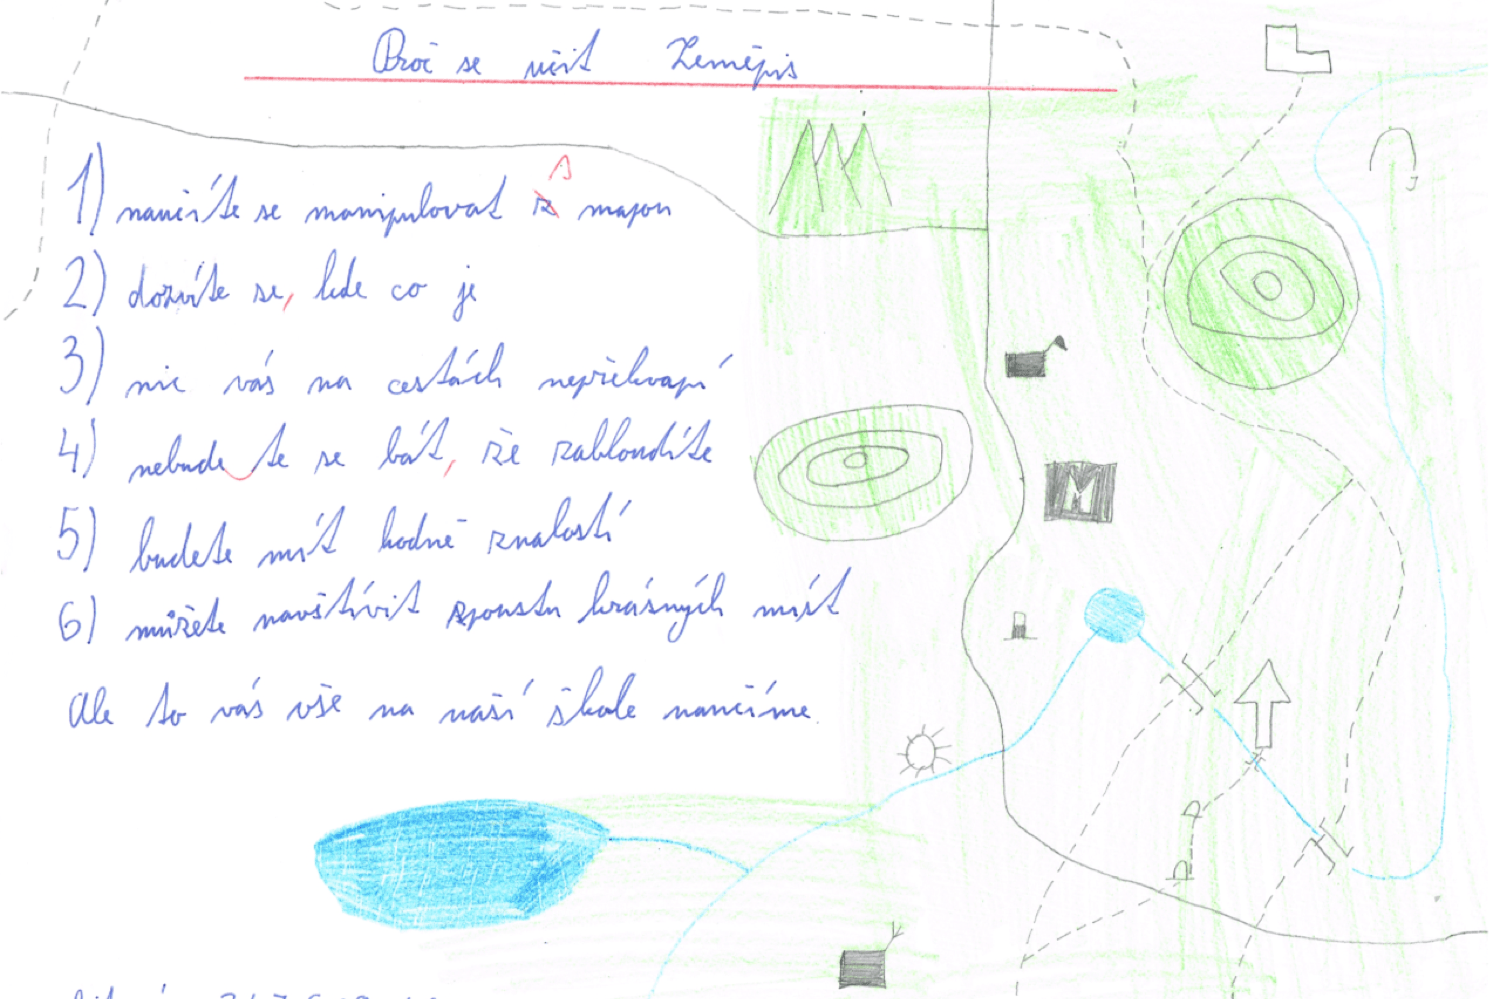 Proč se učit Zeměpis
1) naučíte se manipulovat s mapou
2) dozvíte se, kde co je
3) nic vás na cestách nepřekvapí
4) nebudete se bát, že zabloudíte
5) budete mít hodně znalostí
6) můžete navštívit spoustu krásných míst
Ale to vás vše na naší škole naučíme.
M